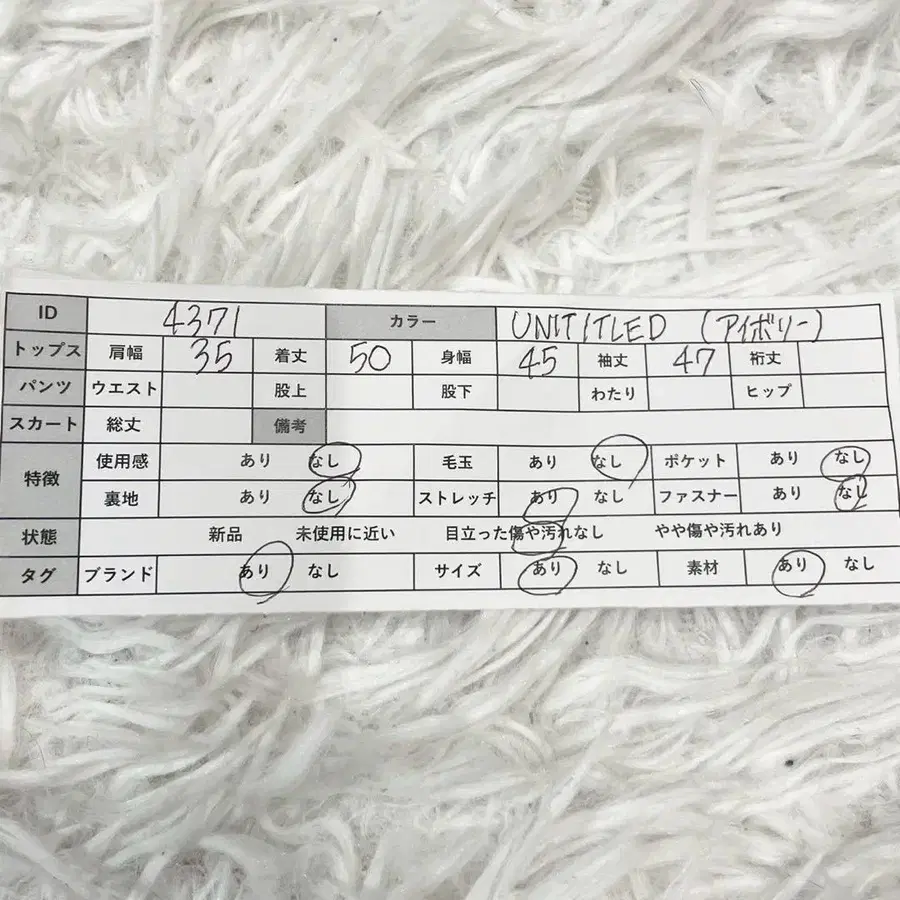 ID 4371 カラー UNITITLED (アイボリー)
トップス 肩幅 35 着丈 50 身幅 45 袖丈 47 裄丈
パンツ ウエスト 股上 股下 わたり ヒップ
スカート 総丈 備考
特徴 使用感 あり なし 毛玉 あり なし ポケット あり なし
裏地 あり なし ストレッチ あり なし ファスナー あり なし
状態 新品 未使用に近い 目立った傷や汚れなし やや傷や汚れあり
タグ ブランド あり なし サイズ あり なし 素材 あり なし